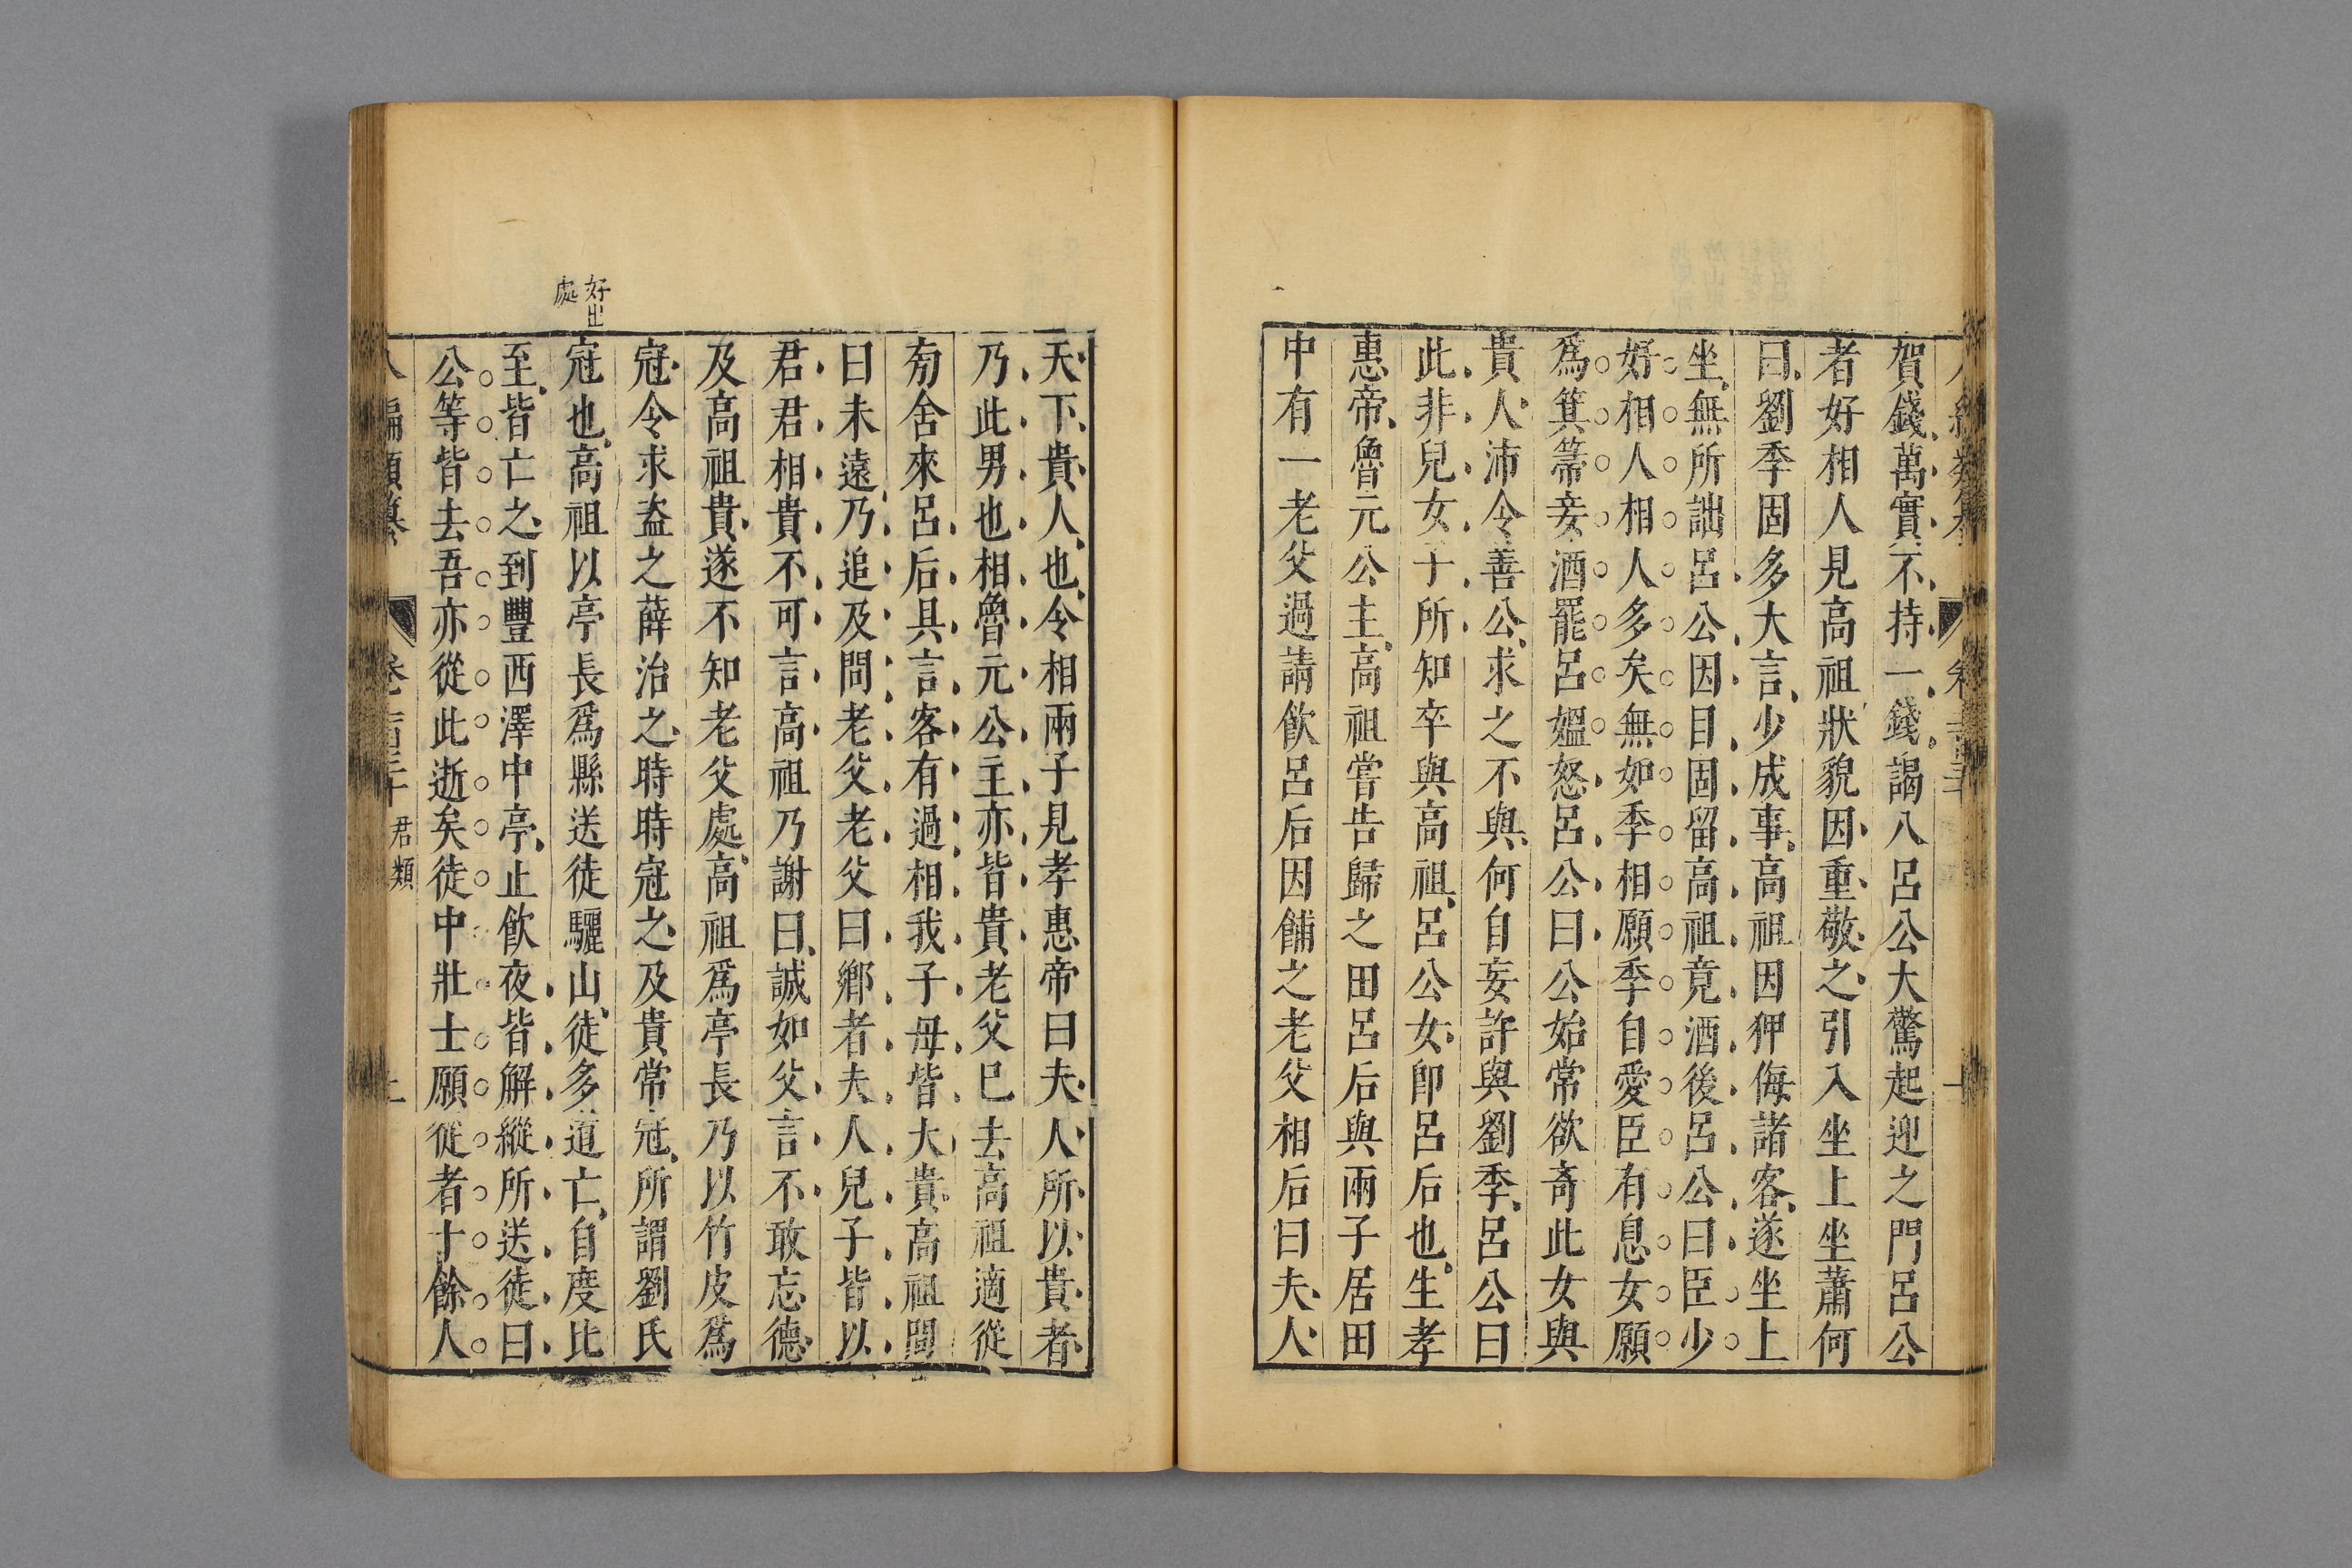 賀錢萬實不持一錢謁入呂公大驚起迎之門呂公
者好相人見高祖狀貌因重敬之引入坐上坐蕭何
曰劉季固多大言少成事高祖因狎侮諸客遂坐上
坐無所詘呂公因目固留高祖竟酒後呂公曰臣少
好相人相人多矣無如季相願季自愛臣有息女願
爲箕箒妾酒罷呂媼怒呂公曰公始常欲奇此女與
貴人沛令善公求之不與何自妄許與劉季呂公曰
此非兒女子所知卒與高祖呂公女卽呂后也生孝
惠帝魯元公主高祖嘗告歸之田呂后與兩子居田
中有一老父過請飲呂后因餔之老父相后曰夫人
天下貴人也令相兩子見孝惠帝曰夫人所以貴者
乃此男也相魯元公主亦皆貴老父已去高祖適從
旁舍來呂后具言客有過相我子母皆大貴高祖問
曰未遠乃追及問老父老父曰鄉者夫人兒子皆以
君君相貴不可言高祖乃謝曰誠如父言不敢忘德
及高祖貴遂不知老父處高祖爲亭長乃以竹皮爲
冠令求盗之薛治之時時冠之及貴常冠所謂劉氏
好出
處
冠也高祖以亭長爲縣送徒驪山徒多道亡自度比
至皆亡之到豐西澤中亭止飲夜皆解縱所送徒曰
公等皆去吾亦從此逝矣徒中壯士願從者十餘人
八編類纂 卷 君類